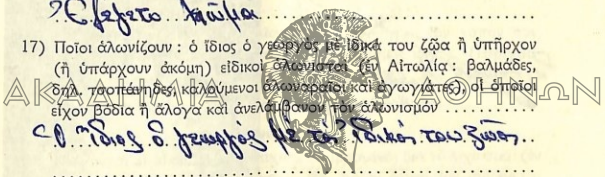 Ἐλέγετο λῶμα
17) Ποῖοι ἁλωνίζουν : ὁ ἴδιος ὁ γεωργὸς μὲ ἰδικά του ζῷα ἢ ὑπῆρχον
(ἢ ὑπάρχουν ἀκόμη) εἰδικοὶ ἁλωνισταὶ (ἐν Αἰτωλίᾳ : βαλμάδες,
δηλ. τσοπάνηδες, καλούμενοι ἁλωναραῖοι καὶ ἀγωγιάτες), οἱ ὁποῖοι
ΑΚΑΔΗΜΙΑ ΑΘΗΝΩΝ
εἶχον βόδια ἢ ἄλογα καὶ ἀνελάμβανον τὸν ἁλωνισμόν
Ὁ ἴδιος ὁ γεωργός μὲ τὰ ἰδικά του ζῶα